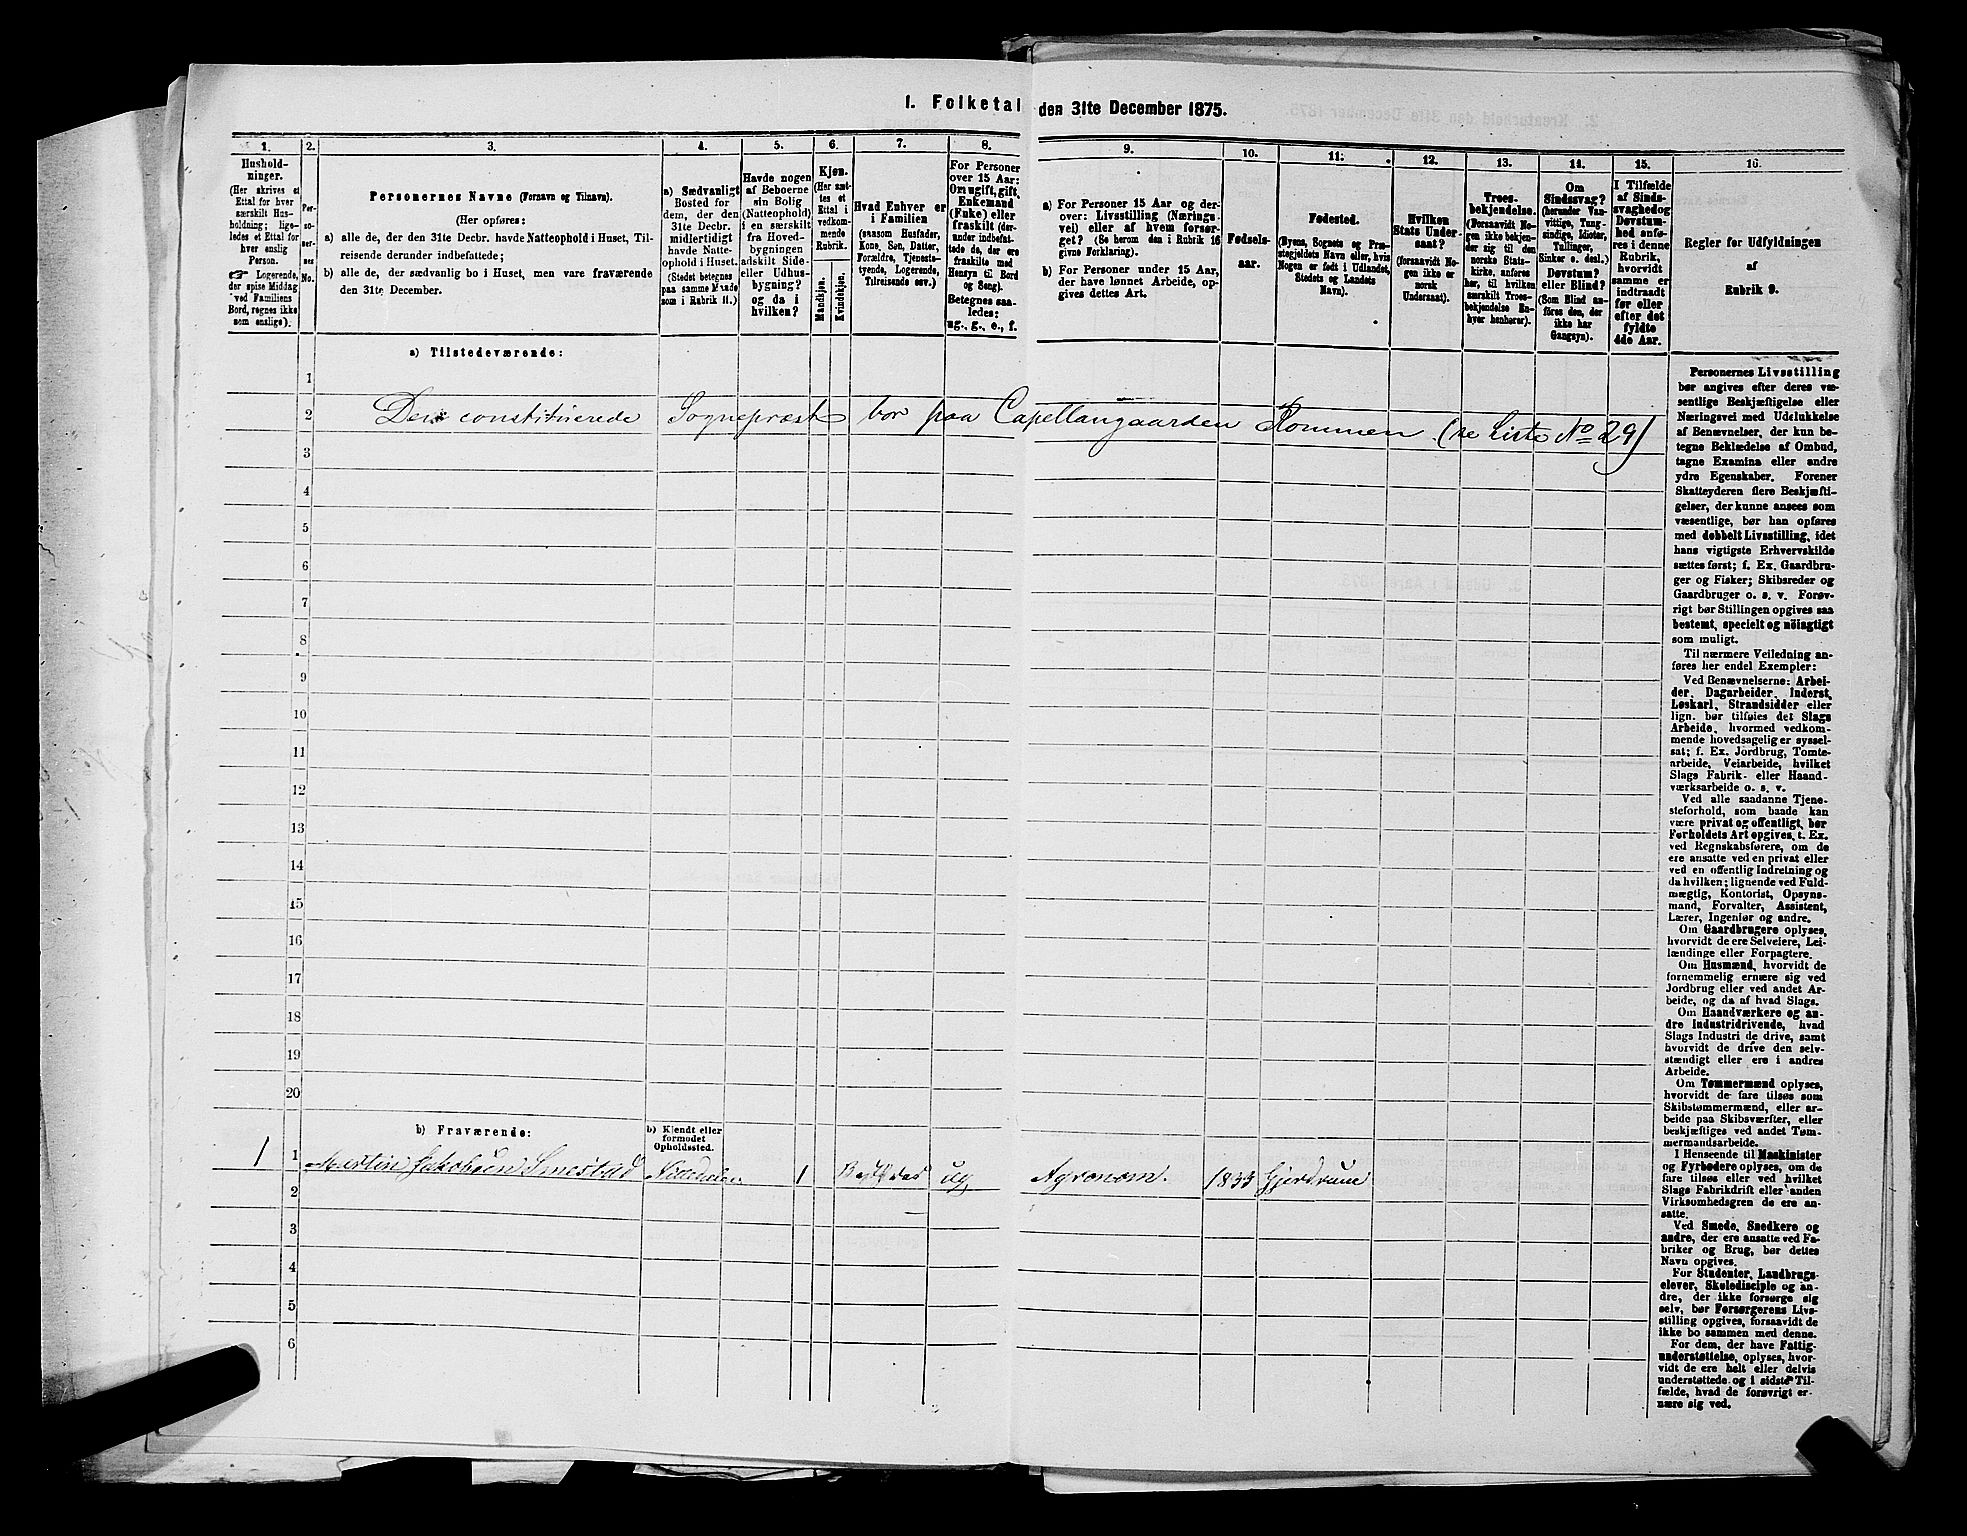 1. Folketal den 31te December 1875.
1.
Hushold-
ninger.
(Her skrives et
Ettal for hver
særskilt Hus-
holdning; lige-
ledes et Ettal for
hver enslig
Person.
☞ Logerende,
der spise Middag
ved Familiens
Bord, regnes ikke
som enslige).
2.
Per-
so-
ner-
nes
No.
3.
Personernes Navne (Fornavn og Tilnavn).
(Her opføres:
a) alle de, der den 31te Decbr. havde Natteophold i Huset, Til-
reisende derunder indbefattede;
b) alle de, der sædvanlig bo i Huset, men vare fraværende
den 31te December.
4.
a) Sædvanligt
Bosted for
dem, der den
31te Decbr.
midlertidigt
havde Natte-
ophold i Huset.
(Stedet betegnes
paa samme Maade
som i Rubrik 11.)
5.
Havde nogen
af Beboerne
sin Bolig
(Natteophold)
i en særskilt
fra Hoved-
bygningen
adskilt Side-
eller Udhus-
bygning?
og da i
hvilken?
6.
Kjøn.
(Her sæt-
tes et
Ettal i
vedkom-
mende
Rubrik.
Mandkjøn.
Kvindekjøn.
7.
Hvad Enhver er
i Familien
(saasom Husfader,
Kone, Søn, Datter,
Forældre, Tjenest-
tyende, Logerende,
Tilreisende osv.)
8.
For Personer
over 15 Aar:
Om ugift, gift,
Enkemand
(Enke) eller
fraskilt (der-
under indbefat-
tede de, der ere
fraskilte med
Hensyn til Bord
og Seng).
Betegnes saa-
ledes:
ug., g., e., f.
9.
a) For Personer 15 Aar og der-
over: Livsstilling (Nærings-
vei) eller af hvem forsør-
get? (Se herom den i Rubrik 16
givne Forklaring).
b) For Personer under 15 Aar,
der have lønnet Arbeide, op-
gives dettes Art.
10.
Fødsels-
aar.
11.
Fødested.
(Byens, Sognets og Præ-
stegjeldets Navn eller, hvis
Nogen er født i Udlandet,
Stedets og Landets
Navn).
12.
Hvilken
Stats Under-
saat?
(forsaavidt No-
gen ikke er
norsk
Undersaat).
13.
Troes-
bekjendelse.
(Forsaavidt No-
gen ikke bekjen-
der sig til den
norske Stats-
kirke, anføres
her, til hvilken
særskilt Troes-
bekjendelse En-
hver henhører).
14.
Om
Sindssvag?
(herunder Van-
vittige, Tung-
sindige, Idioter,
Tullinger,
Sinker o. desl.)
Døvstum?
eller Blind?
(Som Blind an-
føres den, der
ikke har
Gangsyn).
15.
I Tilfælde
af Sinds-
svaghed og
Døvstum-
hed anfø-
res i denne
Rubrik,
hvorvidt
samme er
indtraadt
før eller
efter det
fyldte
4de Aar.
16.
Regler for Udfyldningen
af
Rubrik 9.
a) Tilstedeværende:
1
2 Den constituerede Sognepræst bor paa Capellangaarden Rommen (se Liste No 29)
3
4
5
6
7
8
9
10
11
12
13
14
15
16
17
18
19
20
b) Fraværende:
b) Kjendt eller
formodet
Opholdssted.
1 1 Martin Jakobsen Smestad 1 ug Agronom. 1833 Gjerdrum
2
3
4
5
6
Personernes Livsstilling
bør angives efter deres væ-
sentlige Beskjæftigelse eller
Næringsvei med Udelukkelse
af Benævnelser, der kun be-
tegne Beklædelse af Ombud,
tagne Examina eller andre
ydre Egenskaber. Forener
Skatteyderen flere Beskjæfti-
gelser, der kunne ansees som
væsentlige, bør han opføres
med dobbelt Livsstilling, idet
hans vigtigste Erhvervskilde
sættes først; f. Ex. Gaardbru-
ger og Fisker; Skibsreder og
Gaardbruger o. s. v. Forøv-
rigt bør Stillingen opgives saa
bestemt, specielt og nöiagtigt
som muligt.
Til nærmere Veiledning an-
føres her endel Exempler:
Ved Benævnelserne: Arbei-
der, Dagarbeider, Inderst,
Løskarl, Strandsidder eller
lign. bør tilføies det Slags
Arbeide, hvormed vedkom-
mende hovedsagelig er syssel-
sat; f. Ex. Jordbrug, Tomte-
arbeide, Veiarbeide, hvilket
Slags Fabrik- eller Haand-
værksarbeide o. s. v.
Ved alle saadanne Tjene-
steforhold, som baade kan
være privat og offentligt, bør
Forholdets Art opgives, t. Ex.
ved Regnskabsførere, om de
ere ansatte ved en privat eller
ved en offentlig Indretning og
da hvilken; lignende ved Fuld-
mægtig, Kontorist, Opsyns-
mand, Forvalter, Assistent,
Lærer, Ingeniør og andre.
Om Gaardbrugere oplyses,
hvorvidt de ere Selveiere, Lei-
lændinge eller Forpagtere.
Om Husmænd, hvorvidt de
fornemmelig ernære sig ved
Jordbrug eller ved andet Ar-
beide, og da af hvad Slags.
Om Haandværkere og an-
dre Industridrivende, hvad
Slags Industri de drive, samt
hvorvidt de drive den selv-
stændigt eller ere i andres
Arbeide.
Om Tømmermænd oplyses,
hvorvidt de fare tilsøs som
Skibstømmermænd, eller ar-
beide paa Skibsværfter, eller
beskjæftiges ved andet Tøm-
mermandsarbeide.
I Henseende til Maskinister
og Fyrbødere oplyses, om de
fare tilsøs eller ved hvilket
Slags Fabrikdrift eller anden
Virksomhedsgren de ere an-
satte.
Ved Smede, Snedkere og
andre, der ere ansatte ved Fa-
briker og Brug, bør dettes
Navn opgives.
For Studenter, Landbrugs-
elever, Skoledisciple og an-
dre, der ikke forsørge sig
selv, bør Forsørgerens Livs-
stilling opgives, forsaavidt de
ikke bo sammen med denne.
For dem, der have Fattig-
understøttelse, oplyses, hvor-
vidt de ere helt eller delvis
understøttede og i sidste Til-
fælde, hvad de forøvrigt er-
nære sig ved.